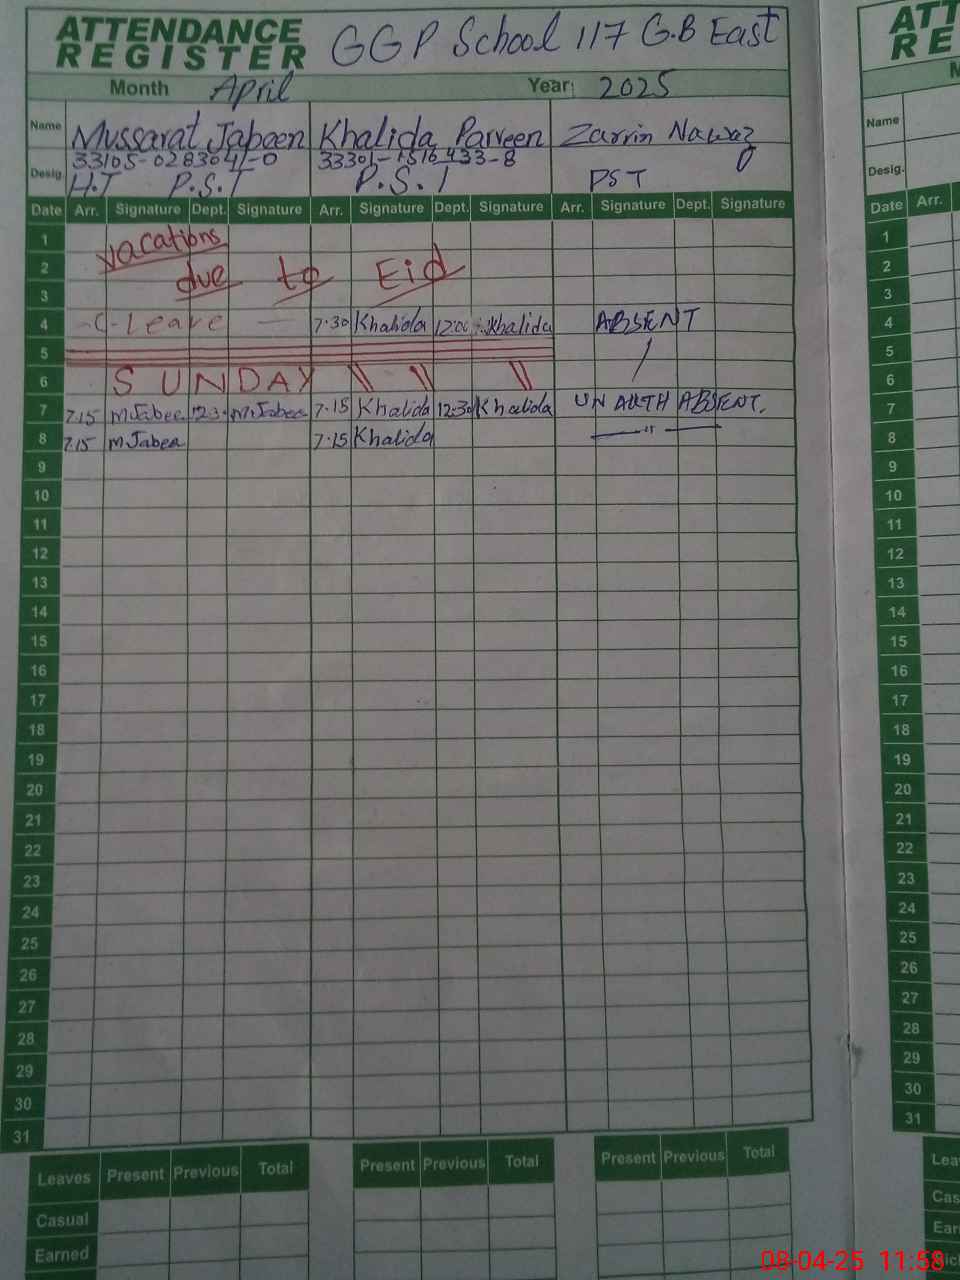 ATTENDANCE REGISTER GGP School 117 G.B East
Month April Year: 2025
Name Mussarat Jabeen Khalida Parveen Zarrin Nawaz
33105-0283041-0 33301-1516433-8
Desig. H.T P.S.T P.S.T PST
Date Arr. Signature Dept. Signature Arr. Signature Dept. Signature Arr. Signature Dept. Signature
1 vacations
2 due to Eid
3
4 C-Leave 7:30 Khalida 12:00 Khalida ABSENT
5
6 SUNDAY \\ \\ \\
7 7.15 M Jabee 12:3 M.Jabee 7.15 Khalida 12:30 Khalida UN AUTH ABSENT.
8 7.15 M Jabee 7.15 Khalida "
9
10
11
12
13
14
15
16
17
18
19
20
21
22
23
24
25
26
27
28
29
30
31
Leaves Present Previous Total Present Previous Total Present Previous Total
Casual
Earned
ATT
RE
M
Name
Desig.
Date Arr.
1
2
3
4
5
6
7
8
9
10
11
12
13
14
15
16
17
18
19
20
21
22
23
24
25
26
27
28
29
30
31
Lea
Cas
Ear
08-04-25 11:58